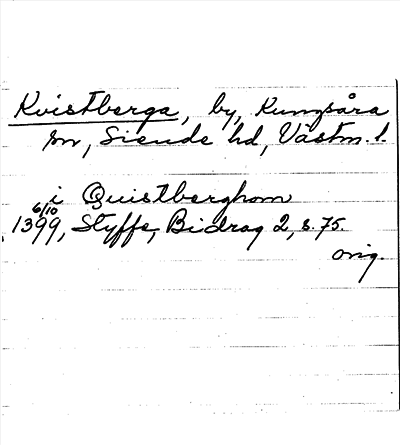 Kvistberga, by, Kungsåra
sn, Siende hd, Västm. l.
i Quistberghom
6/10
1399, Styffe, Bidrag 2, s. 75.
orig.